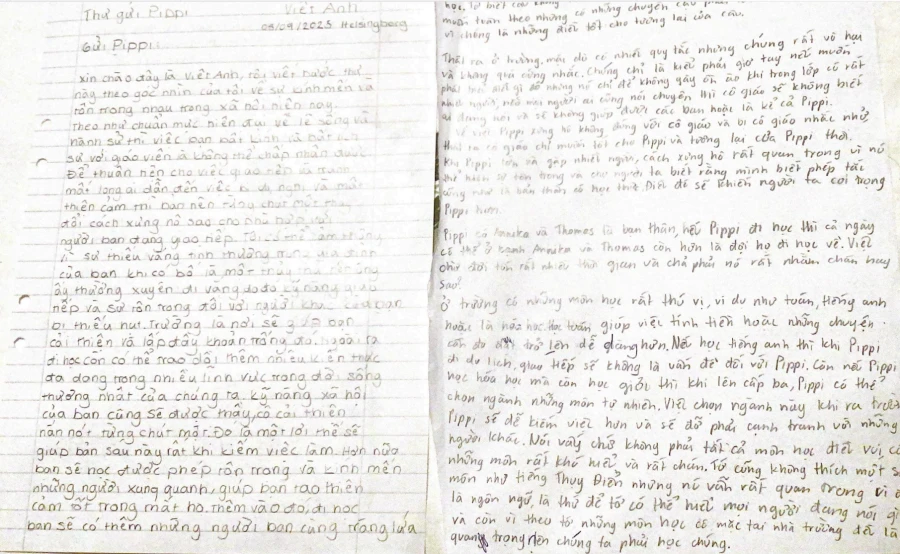 Thư gửi Pippi
Việt Anh
09/09/2025 Helsingborg
Gửi Pippi!
xin chào đây là Việt Anh, tôi viết bức thư
này theo góc nhìn của tôi về sự kính mến và
tôn trọng nhau trong xã hội hiện nay.
Theo như chuẩn mực hiện đại về lẽ sống và
hành xử thì việc bạn bất kính và bất lịch
sự với giáo viên là không thể chấp nhận được
Để thuận tiện cho việc giao tiếp và tránh
mất lòng ai dẫn đến việc bị dị nghị và mất
thiện cảm thì bạn nên thay chút một thay
đổi cách xưng hô sao cho phù hợp với
người bạn đang giao tiếp. Tôi có thể cảm thông
vì sự thiếu vắng tình thương trong gia đình
của bạn khi có bố là một thủy thủ nên ông
ấy thường xuyên đi vắng do đó kỹ năng giao
tiếp và sự tôn trọng đối với người khác của bạn
bị thiếu hụt. Trường là nơi sẽ giúp bạn
cải thiện và lấp đầy khoản trống đó. Ngoài ra
đi học còn có thể trao dồi thêm nhiều kiến thức
đa dạng trong nhiều lĩnh vực trong đời sống
thường nhật của chúng ta, kỹ năng xã hội
của bạn cũng sẽ được thầy, cô cải thiện
nắn nót từng chút một. Đó là một lợi thế sẽ
giúp bạn sau này rất khi kiếm việc làm. Hơn nữa
bạn sẽ học được phép tôn trọng và kính mến
những người xung quanh, giúp bạn tạo thiện
cảm tốt trong mắt họ. Thêm vào đó, đi học
bạn sẽ có thêm những người bạn cùng trang lứa
học. Tớ biết
muốn tuân theo những có những chuyện
vì chúng là những điều tốt cho tương lai của cậu.
Thật ra ở trường, mặc dù có nhiều quy tắc nhưng chúng rất vô hại
và không quá cứng nhắc. Chúng chỉ là kiểu phải giơ tay nếu muốn
phát biểu gì đó nhưng nó chỉ để không gây ồn ào khi trong lớp có rất
nhiều người, nếu mọi người ai cũng nói chuyện thì cô giáo sẽ không biết
ai đang nói và sẽ không giúp được các bạn hoặc là kể cả Pippi.
Về việc Pippi xưng hô không đúng với cô giáo và bị cô giáo nhắc nhở,
thật ra cô giáo chỉ muốn tốt cho Pippi và tương lai của Pippi thôi.
Khi Pippi lớn và gặp nhiều người, cách xưng hô rất quan trọng vì nó
thể hiện sự tôn trọng và cho người ta biết rằng mình biết phép tắc
cũng như là bản thân có học thức. Điều đó sẽ khiến người ta coi trọng
Pippi hơn.
Pippi có Annika và Thomas là bạn thân, nếu Pippi đi học thì cả ngày
có thể ở cạnh Annika và Thomas còn hơn là đợi họ đi học về. Việc
chờ đợi tốn rất nhiều thời gian và chả phải nó rất nhàm chán hay
sao?
ở trường có những môn học rất thú vị, ví dụ như toán, tiếng anh
hoặc là hóa học. Học toán giúp việc tính tiền hoặc những chuyện
cần đo đạc trở lên dễ dàng hơn. Nếu học tiếng anh thì khi Pippi
đi du lịch, giao tiếp sẽ không là vấn đề đối với Pippi. Còn nếu Pippi
học hóa học mà còn học giỏi thì khi lên cấp ba, Pippi có thể
chọn ngành những môn tự nhiên. Việc chọn ngành này khi ra trường
Pippi sẽ dễ kiếm việc hơn và sẽ đỡ phải cạnh tranh với những
người khác. Nói vậy chứ không phải tất cả môn học đều vui, có
những môn rất khó hiểu và rất chán. Tớ cũng không thích một số
môn như tiếng Thụy Điển nhưng nó vẫn rất quan trọng vì đ
là ngôn ngữ, là thứ để tớ có thể hiểu mọi người đang nói gì
và còn vì theo tớ những môn học có mặt tại nhà trường đều là
quan trọng nên chúng ta phải học chúng.